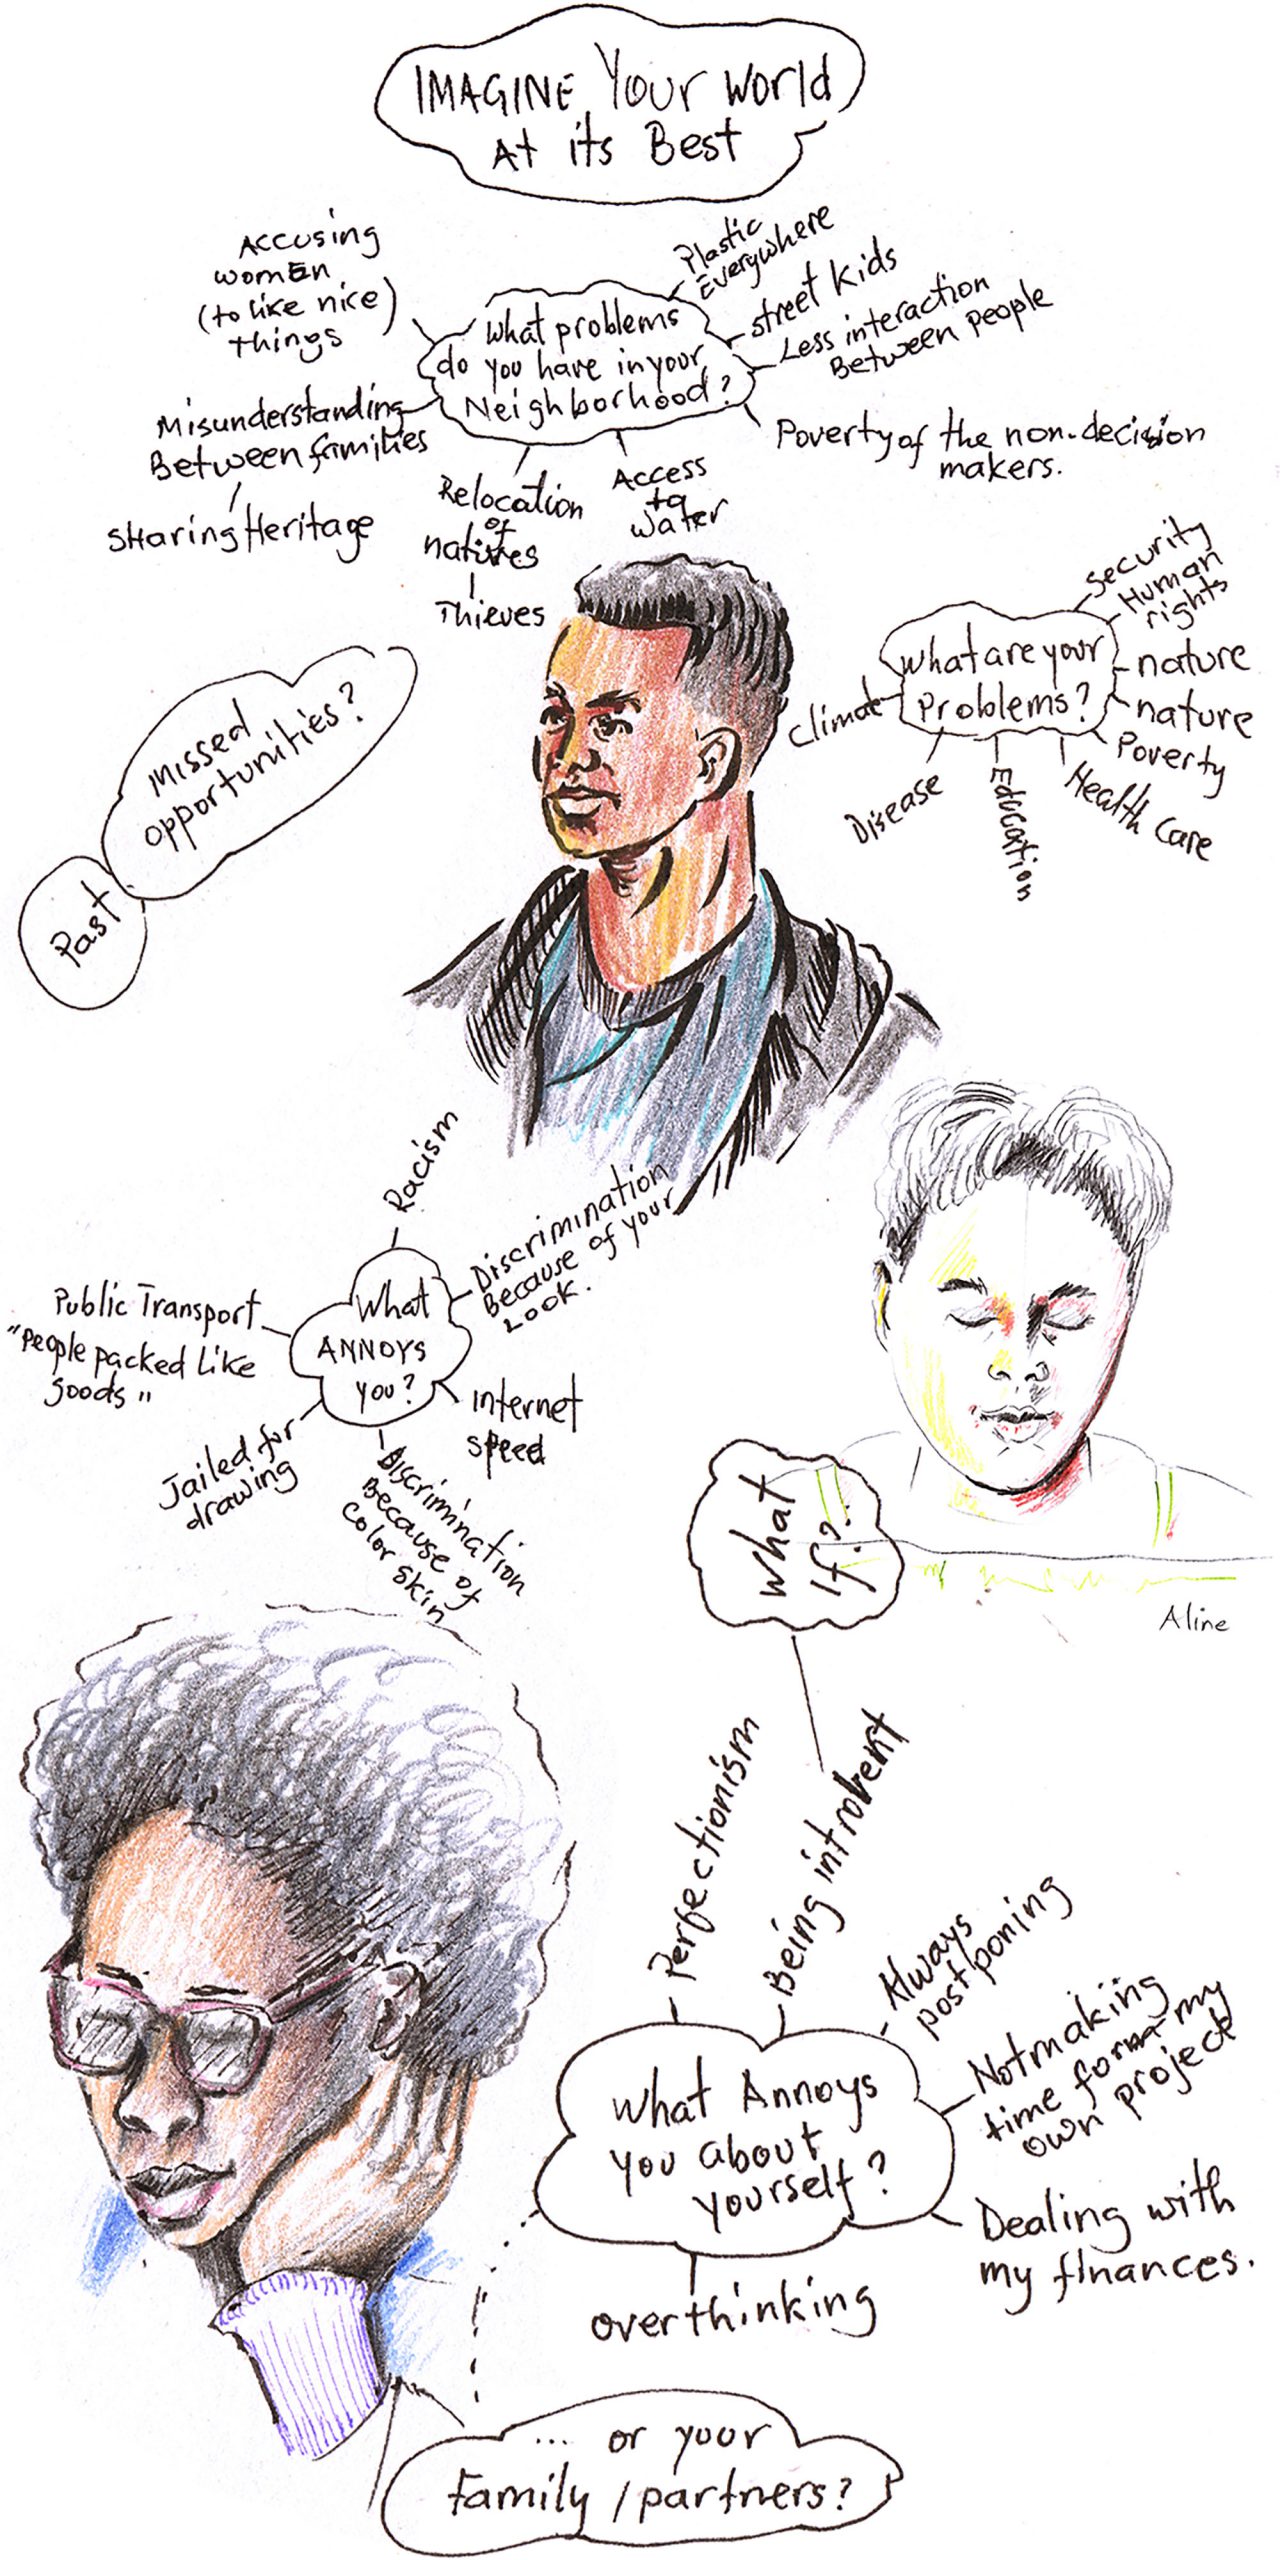 IMAGINE Your World
At its Best
Accusing
women
(to like nice)
things
What problems
do you have in your
Neighborhood?
Plastic
Everywhere
street Kids
Less interaction
Between people
Poverty of the non-decision
makers.
Misunderstanding
Between families
Sharing Heritage
Relocation
of
natives
Thieves
Access
to
water
What are your
Problems?
Security
Human
rights
nature
nature
Poverty
Health Care
Education
Disease
Climate
Missed
opportunities?
Past
Racism
What
ANNOYS
you?
Discrimination
Because of your
Look.
Public Transport
"People packed Like
goods"
Internet
speed
Jailed for
drawing
Discrimination
Because of
Color skin
What
If?
Aline
Perfectionism
Being introvent
Always
postponing
Not making
time for my
own project
What Annoys
you about
yourself?
Dealing with
my finances.
overthinking
.... or your
Family / partners?